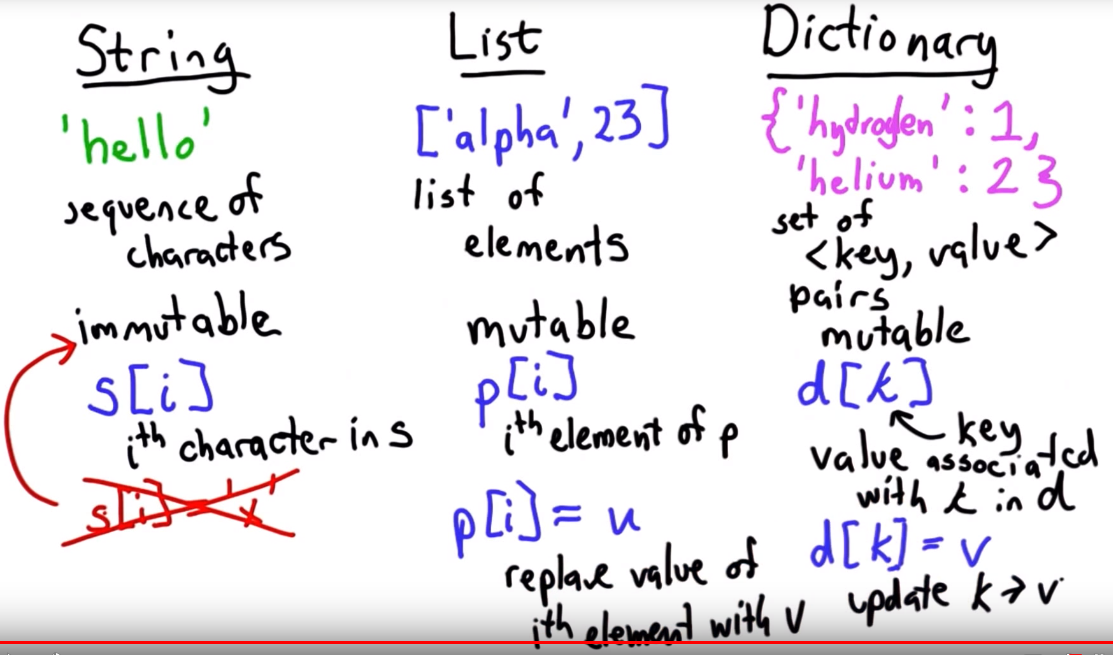 String
'hello'
sequence of
characters
immutable
s[i]
ith character in s
s[i] =
List
['alpha', 23]
list of
elements
mutable
p[i]
ith element of p
p[i] = u
replace value of
ith element with v
Dictionary
{'hydrogen' : 1,
'helium' : 2 }
set of
<key, value>
pairs
mutable
d[k]
key
value associated
with k in d
d[k] = v
update k → v